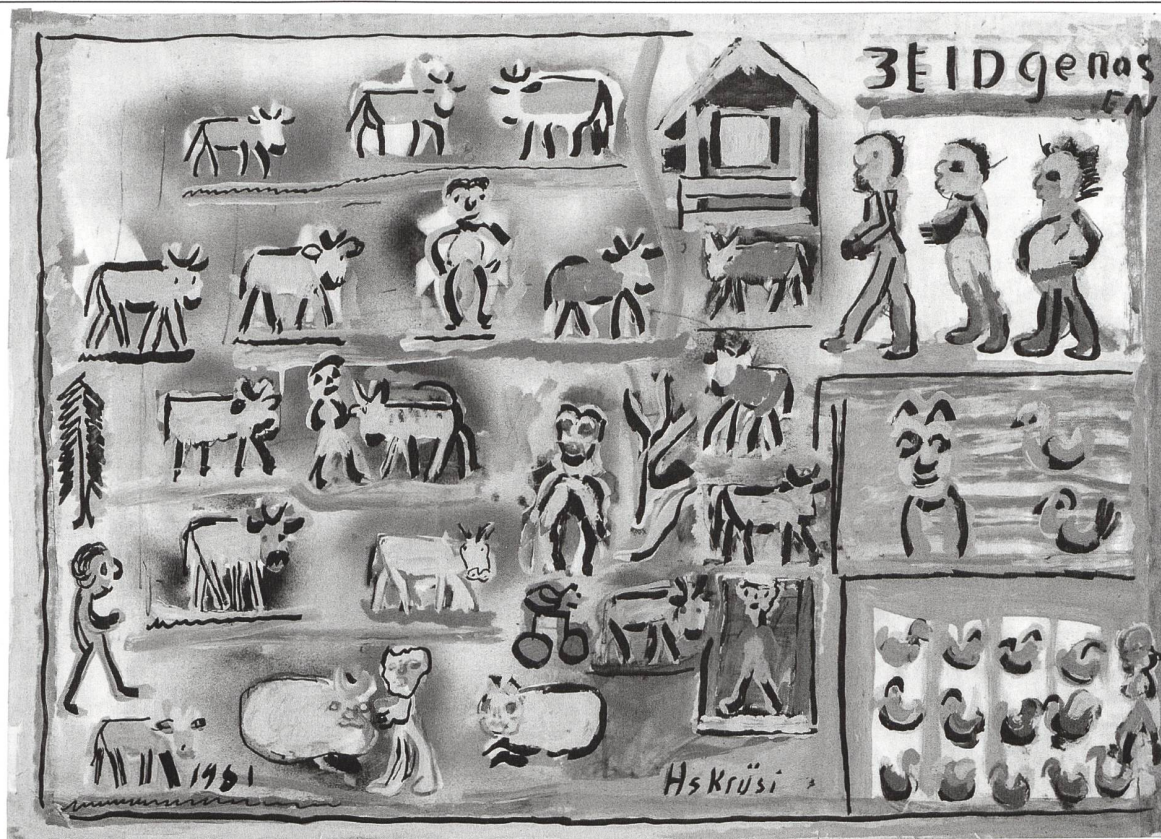 3EIDgenos
EN
1981
HsKrüsi